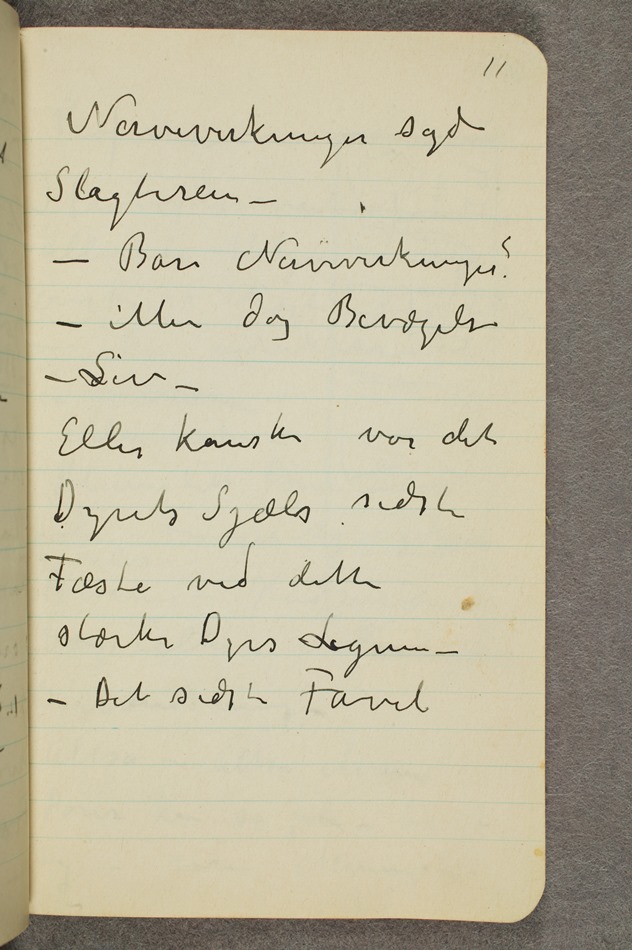 11
Nervevirkninger sagde
Slagteren –
– Bare Nervevirkninger?
– eller dog Bevægelse
– Liv –
Eller kanske var det
Dyrets Sjæls sidste
Fæste ved dette
stærke Dyrs Legeme –
– Det sidste Farvel